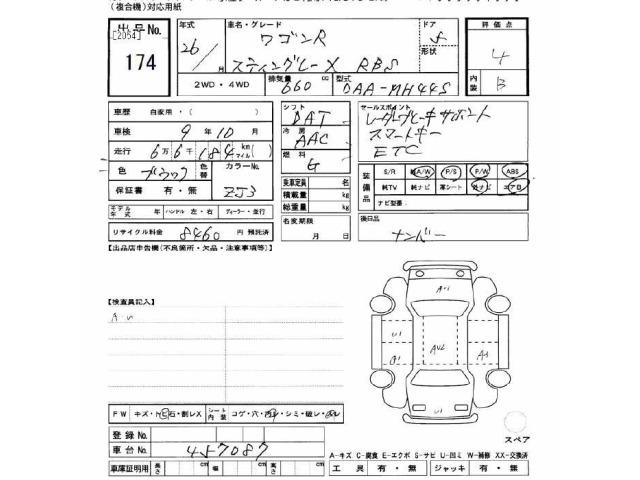 (複合機)対応用紙
出品No. 年式 車名・グレード ドア 評価点
[2054] 26/ ワゴンR 5 4
174 形状
スティングレーX RBS 内装 B
2WD・4WD 排気量 660 cc 型式 DAA-MH44S
車歴 自家用・( ) シフト DAT セールスポイント
車検 9年10月 冷房 AAC レーダーブレーキサポート
走行 6万6千184 km(マイル) スマートキー
燃料 G ETC
色 ブラック 色替 カラーNo. ZJ3
装備品 S/R 純A/W P/S P/W ABS
純TV 純ナビ 革シート 外ナビ エアB
ナビ型番:
保証書 有・無
乗車定員 名
積載量 kg
総重量 kg
モデル年式 年 ハンドル 左・右 ディーラー・並行
名変期限 月 日
後日品
リサイクル料金 8460 円 預託済
ナンバー
【出品店申告欄(不良箇所・欠品・注意事項等)】
【検査員記入】
A-1
U1
A1 AU2 A1
FW キズ・トビ石・割レX シート内装 コゲ・穴・汚レ・シミ・破レ・
登録No.
車台No. 457087
スペア
A-キズ C-腐食 E-エクボ S-サビ U-凹ミ W-補修 XX-交換済
車庫証明用 長さ cm 幅 cm 高さ cm
工具 有・無 ジャッキ 有・無